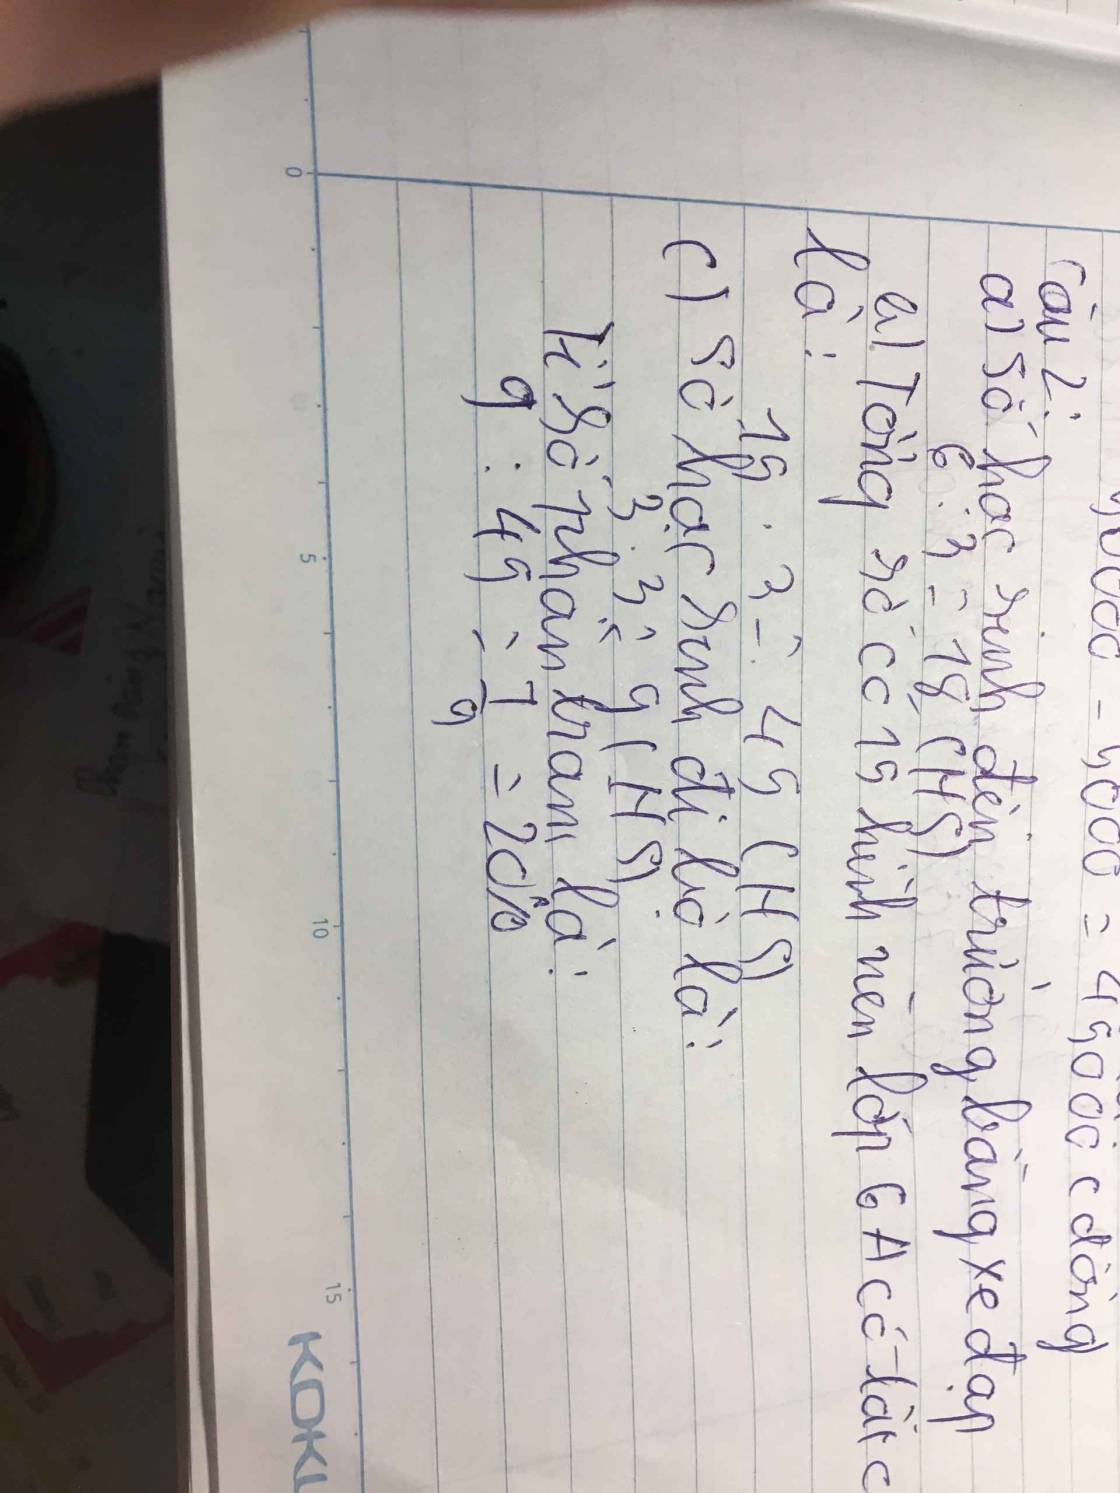 000 - 5000 = 45000 đồng
Câu 2:
a) Số học sinh đến trường bằng xe đạp
6 . 3 = 18 (HS)
b) Tổng số có 15 hình nên lớp 6A có tất cả
là:
15 . 3 = 45 (HS)
c) Số học sinh đi bộ là:
3 . 3 = 9 (HS)
Tỉ số phần trăm là:
9 : 45 = 1/9 = 20%
0 5 10 15
KOKU